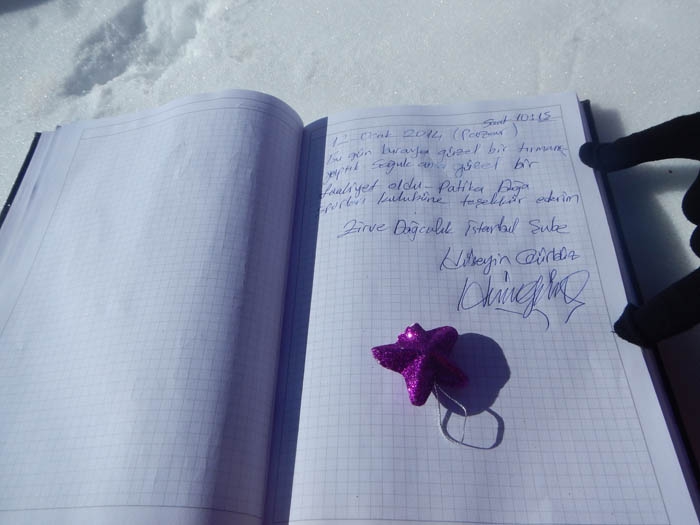 Saat 10:15
12 Ocak 2014 (Pazar)
Bu gün buraya güzel bir tırmanış
yaptık Soğuk ama güzel bir
faaliyet oldu - Patika Doğa
Sporları kulübüne teşekkür ederim
Zirve Dağcılık İstanbul Şube
Hüseyin Gürbüz